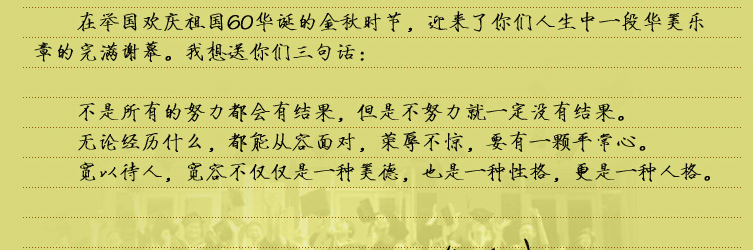 在举国欢庆祖国60华诞的金秋时节，迎来了你们人生中一段华美乐
章的完满谢幕。我想送你们三句话：
不是所有的努力都会有结果，但是不努力就一定没有结果。
无论经历什么，都能从容面对，荣辱不惊，要有一颗平常心。
宽以待人，宽容不仅仅是一种美德，也是一种性格，更是一种人格。